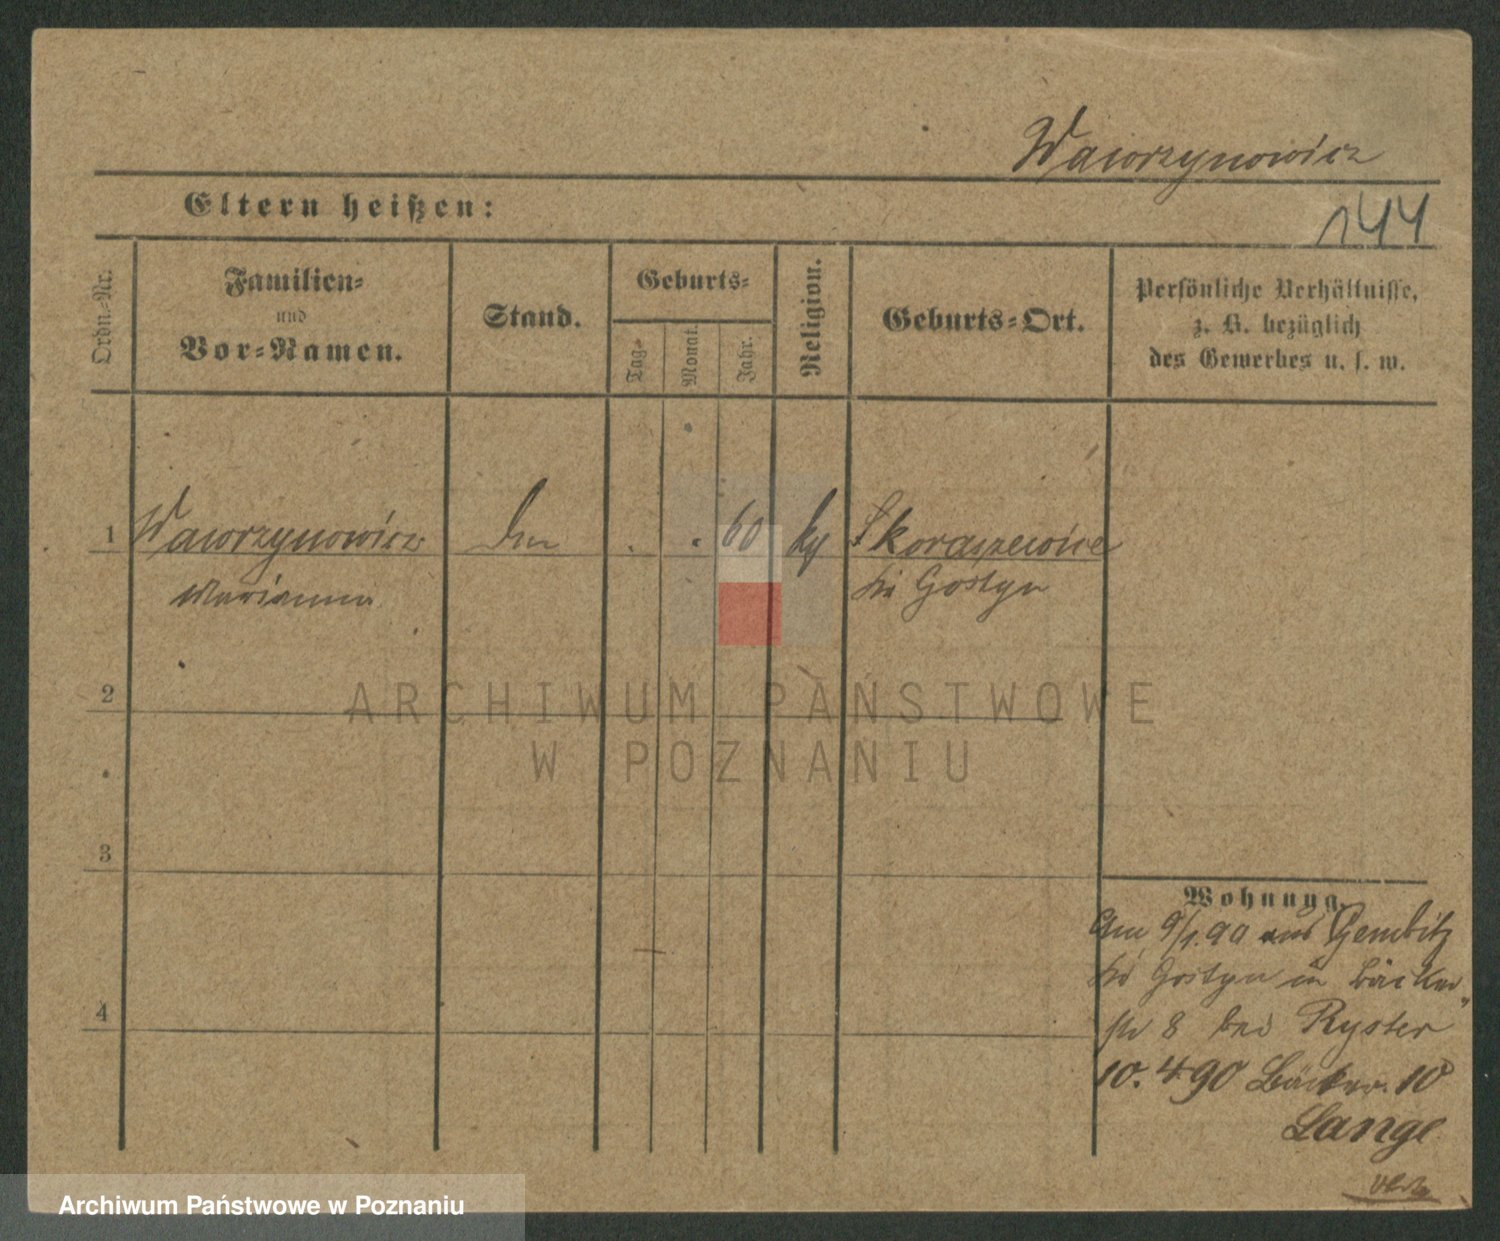 Wawrzynowicz
Eltern heißen:
144
Ordn.-Nr.
Familien-
und
Vor-Namen.
Stand.
Geburts-
Tag-
Monat.
Jahr.
Religion.
Geburts-Ort.
Persönliche Verhältnisse,
z. B. bezüglich
des Gewerbes u. s. w.
1 Wawrzynowicz 60 Skoraszewice
Marianna Gostyn
2
ARCHIWUM PAŃSTWOWE
W POZNANIU
3
Wohnung.
Am 9/1. 90 aus Gembitz
Gostyn in Bäcker
str 8 bei Ryster
4
10. 4 90 Bäcker. 10
Lange
Archiwum Państwowe w Poznaniu